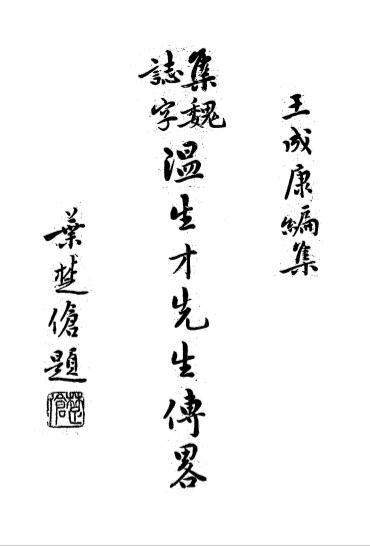 王成康編集
集魏誌字
溫生才先生傳畧
葉楚傖題
楚傖